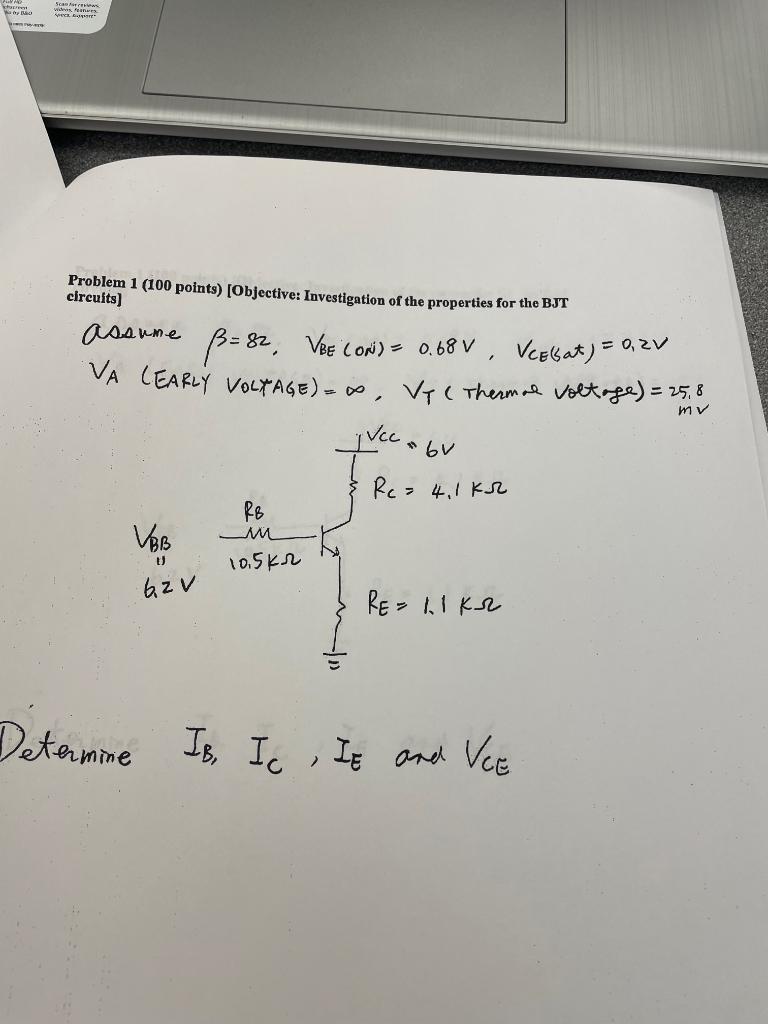 Full HD
Scan for reviews,
videos, features,
specs, support*
Problem 1 (100 points) [Objective: Investigation of the properties for the BJT
circuits]
assume β = 82, VBE (ON) = 0.68 V, VCE(sat) = 0.2V
VA (EARLY VOLTAGE) = ∞, VT (Thermal Voltage) = 25.8
mV
VCC = 6V
RC = 4.1 KΩ
RB
VBB
10.5KΩ
=
6.2 V
RE = 1.1 KΩ
Determine IB, IC, IE and VCE